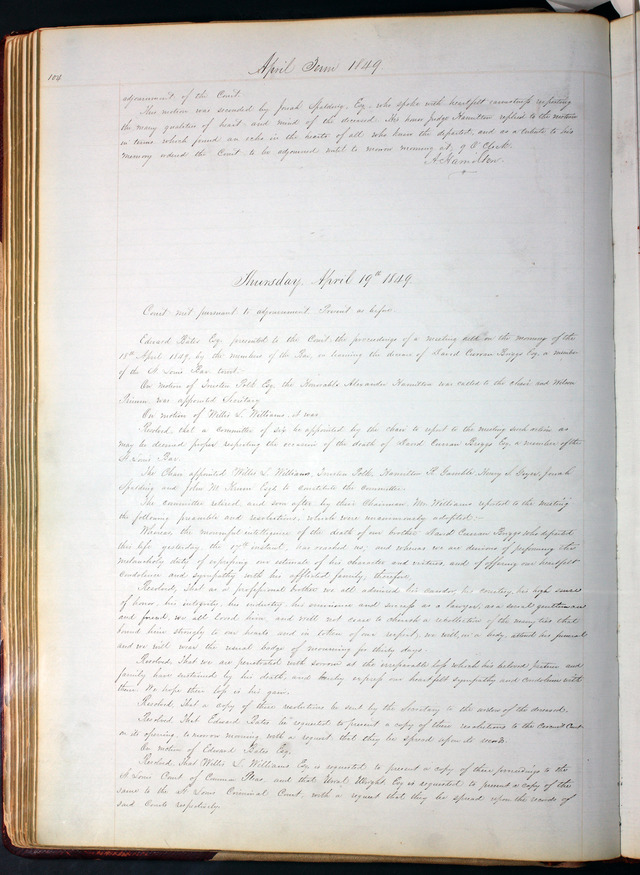 104
April Term 1849
adjournment of the Court.
This motion was seconded by Josiah Spalding, Esq. who spoke with heartfelt earnestness respecting
the many qualities of heart and mind of the deceased. His honor Judge Hamilton replied to the motion
in terms which found an echo in the hearts of all who knew the departed, and as a tribute to his
memory ordered the Court to be adjourned until to morrow morning at 9 O'Clock.
A. Hamilton
Thursday April 19th 1849.
Court met pursuant to adjournment Present as before.
Edward Bates Esq. presented to the Court, the proceedings of a meeting held on the morning of the
18th April 1849, by the members of the Bar, on learning the decease of David Cuevan Briggs Esq. a member
of the St Louis Bar to wit.
On motion of Trusten Polk Esq. the Honorable Alexander Hamilton was called to the chair and Wilson
Primm, was appointed Secretary
On motion of Willis L. Williams, it was
Resolved, that a Committee of six be appointed by the chair to report to the meeting such action as
may be deemed proper respecting the occasion of the death of David Cuevan Briggs Esq. a member of the
St Louis Bar.
The Chair appointed Willis L. Williams, Trusten Polk, Hamilton R. Gamble, Henry S. Geyer, Josiah
Spalding and John M. Krum Esqs to constitute the Committee.
The committee retired, and soon after by their Chairman, Mr Williams reported to the meeting
the following preamble and resolutions, which were unanimously adopted:
Whereas the mournful intelligence of the death of our brother David Cuevan Briggs who departed
this life yesterday, the 17th instant, has reached us, and whereas we are desirous of performing the
melancholy duties of expressing our estimate of his character and virtues, and of offering our heartfelt
condolence and sympathy with his afflicted family, therefore,
Resolved, That as a professional brother we all admired his candor, his courtesy, his high sense
of honor, his integrity, his industry, his eminence and success as a lawyer, as a social gentleman
and friend, we all loved him, and will not cease to cherish a recollection of the many ties that
bound him strongly to our hearts, and in token of our respect, we will, in a body, attend his funeral
and we will wear the usual badge of mourning for thirty days.
Resolved, That we are penetrated with sorrow at the irreparable loss which his beloved partner and
family have sustained by his death, and hereby express our heartfelt sympathy and condolence with
them. We hope their loss is his gain.
Resolved, That a copy of these resolutions be sent by the Secretary to the widow of the deceased.
Resolved, That Edward Bates be requested to present a copy of these resolutions to the Circuit Court
on its opening to morrow morning with a request that they be spread upon its records.
On motion of Edward Bates Esq.
Resolved, That Willis L. Williams Esq is requested to present a copy of these proceedings to the
St Louis Court of Common Pleas, and that Uriel Wright Esq is requested to present a copy of the
same to the St Louis Criminal Court, with a request that they be spread upon the records of
said Courts respectively.